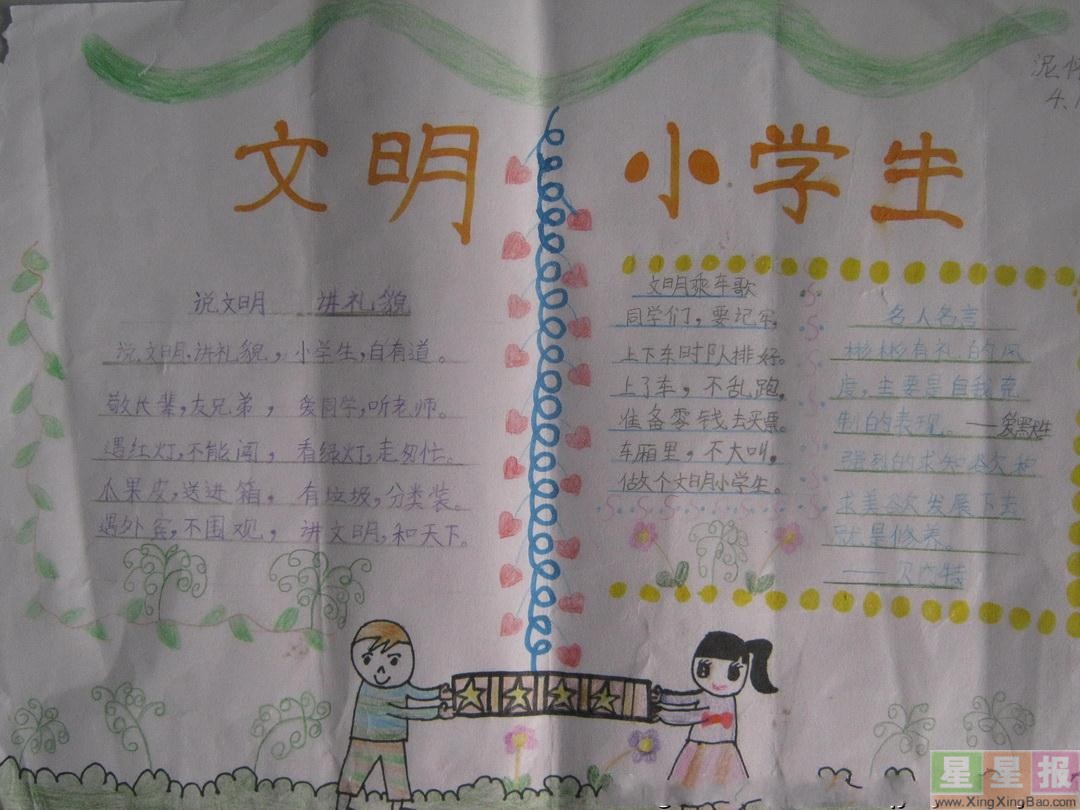 文明 小学生
说文明 讲礼貌
说文明,讲礼貌,小学生,自有道。
敬长辈,友兄弟,爱同学,听老师。
遇红灯,不能闯,看绿灯,走匆忙。
瓜果皮,送进箱,有垃圾,分类装。
遇外宾,不围观,讲文明,和天下。
文明乘车歌
同学们,要记牢,
上下车时队排好。
上了车,不乱跑,
准备零钱去买票。
车厢里,不大叫,
做个文明小学生。
名人名言
彬彬有礼的风
度,主要是自我克
制的表现。——爱默生
强烈的求知欲和
求美欲发展下去
就是修养。
——贝内特
4.1
星星报
www.XingXingBao.com